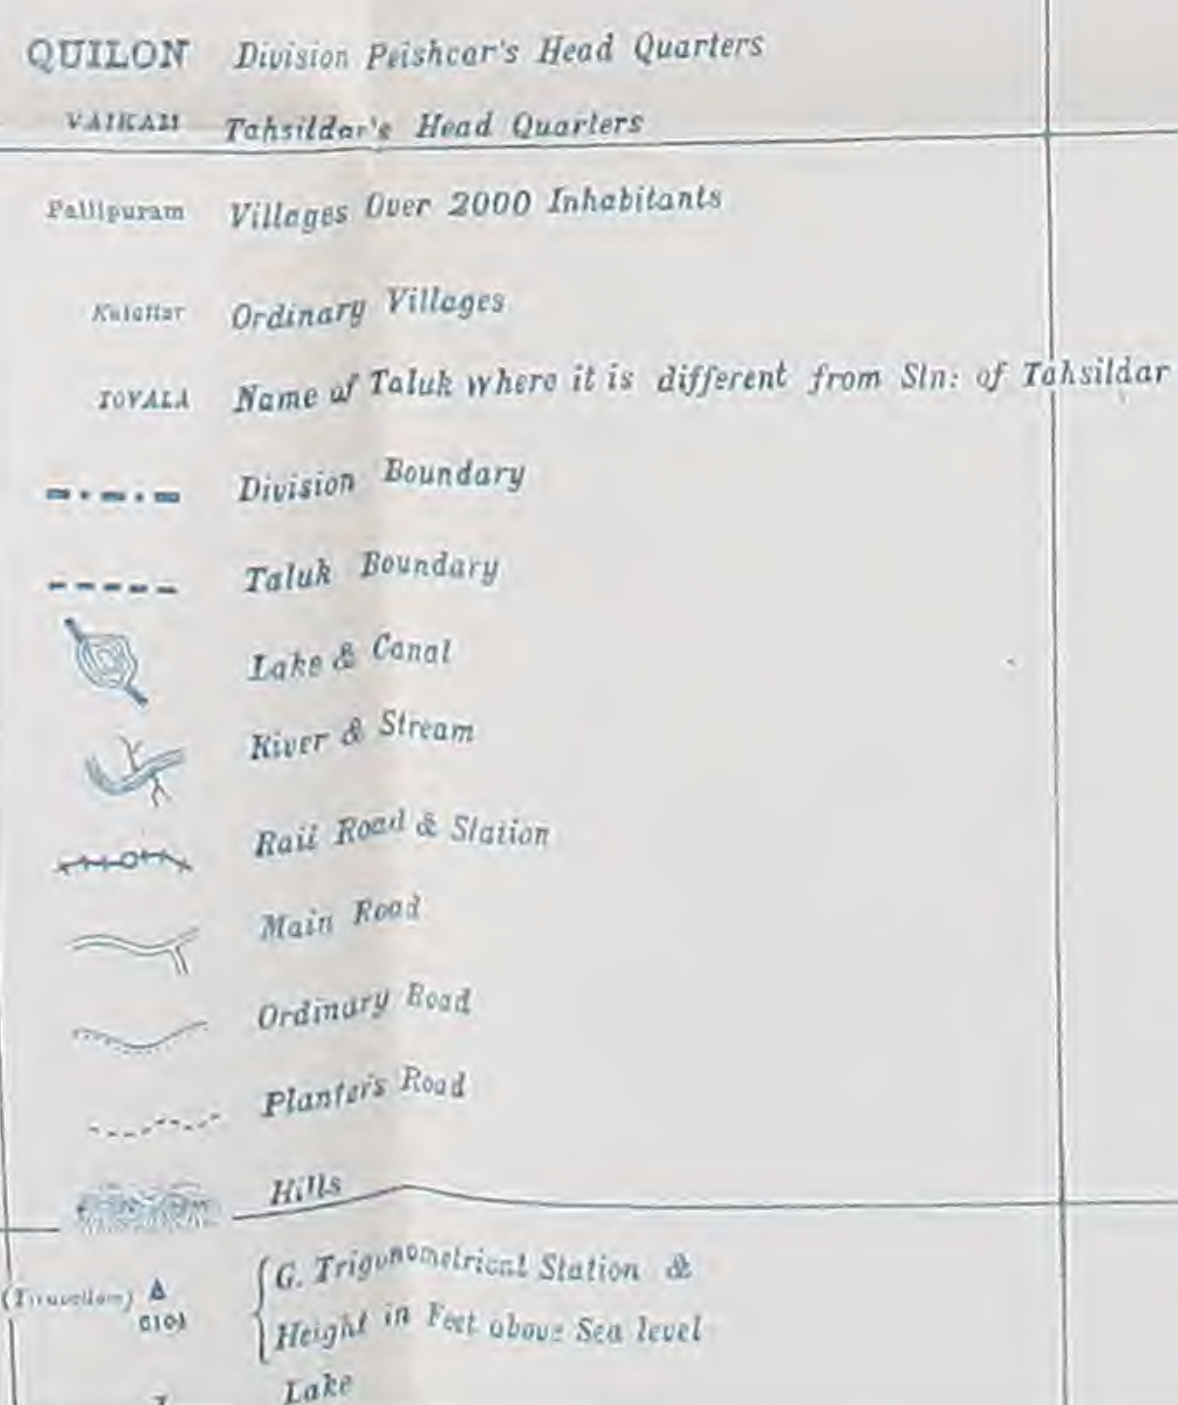 QUILON Division Peishcar's Head Quarters
VAIKAM Tahsildar's Head Quarters
Pallipuram Villages Over 2000 Inhabitants
Ordinary Villages
TOVALA Name of Taluk where it is different from Stn: of Tahsildar
Division Boundary
Taluk Boundary
Lake & Canal
River & Stream
Rail Road & Station
Main Road
Ordinary Road
Planter's Road
Hills
G. Trigonometrical Station &
Height in Feet above Sea level
Lake